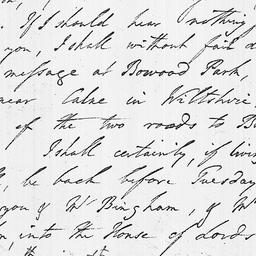 . If I should hear nothing
you, I shall without fail
message at Bowood Park,
near Calne in Wiltshire
of the two roads to B
I shall certainly, if livin
be back before Tuesday
you & Mr Bingham, & Mr
into the House of Lords